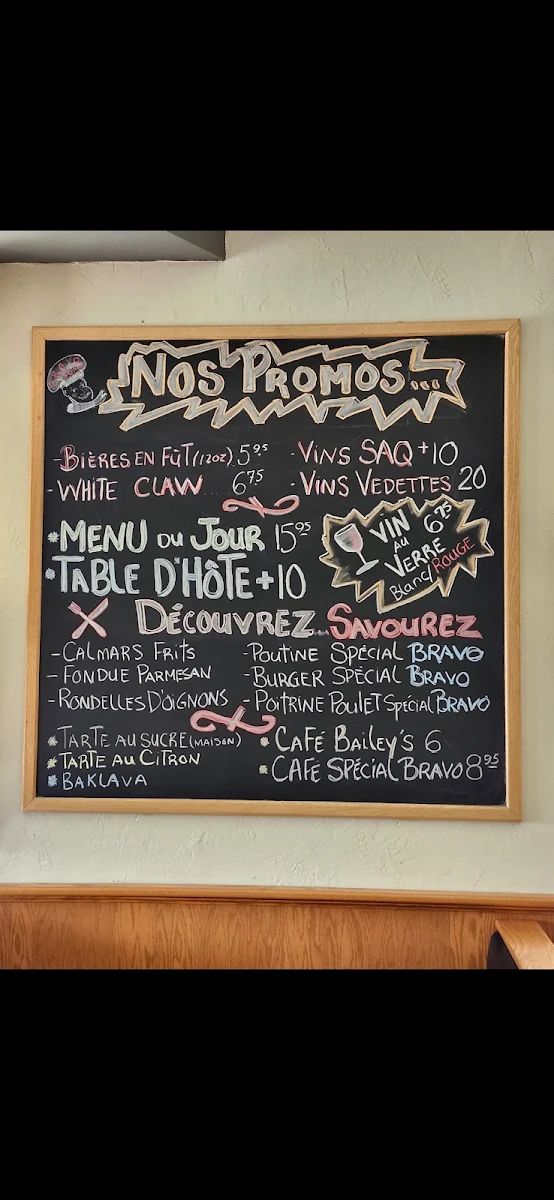 BRAVO
NOS PROMOS...
- BIÈRES EN FÛT (12OZ) 5.95
- WHITE CLAW .... 6.75
- VINS SAQ +10
- VINS VEDETTES 20
* MENU DU JOUR 15.95
* TABLE D'HÔTE +10
VIN 6.75
AU
VERRE
Blanc/ROUGE
DÉCOUVREZ... SAVOUREZ
- CALMARS FRITS
- FONDUE PARMESAN
- RONDELLES D'OIGNONS
- POUTINE SPÉCIAL BRAVO
- BURGER SPÉCIAL BRAVO
- POITRINE POULET SPÉCIAL BRAVO
* TARTE AU SUCRE (MAISON)
* TARTE AU CITRON
* BAKLAVA
* CAFÉ BAILEY'S 6
* CAFÉ SPÉCIAL BRAVO 8.95